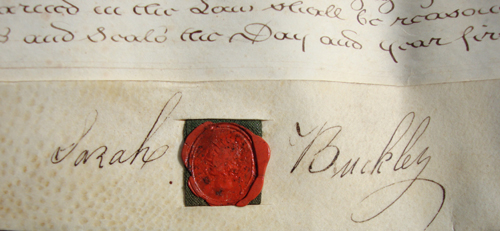 in the Law shall be reason
and Seals the Day and year fir
Sarah Buckley